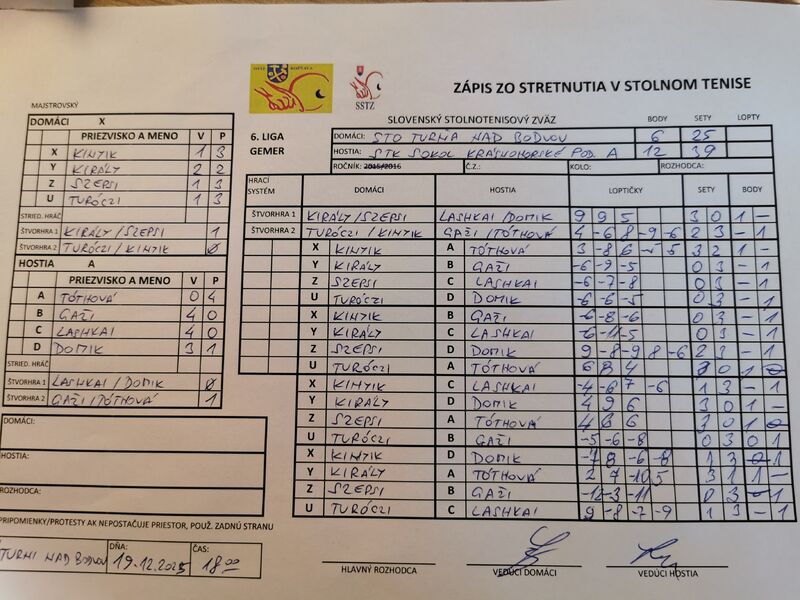 ZÁPIS ZO STRETNUTIA V STOLNOM TENISE
SSTZ
MAJSTROVSKÝ
SLOVENSKÝ STOLNOTENISOVÝ ZVÄZ BODY SETY LOPTY
6. LIGA DOMÁCI: STO TURŇA NAD BODVOU 6 25
GEMER HOSTIA: STK SOKOL KRÁSNOHORSKÉ POD. A 12 39
ROČNÍK: 2015/2016 Č.Z.: KOLO: ROZHODCA:
DOMÁCI X
PRIEZVISKO A MENO V P
X KINTIK 1 3
Y KIRÁLY 2 2
Z SZEPSI 1 3
U TURÓCZI 1 3
STRIED. HRÁČ
ŠTVORHRA 1 KIRÁLY/SZEPSI 1
ŠTVORHRA 2 TURÓCZI / KINTIK 0
HOSTIA A
PRIEZVISKO A MENO V P
A TÓTHOVÁ 0 4
B GAŽI 4 0
C LASHKAI 4 0
D DOMIK 3 1
STRIED. HRÁČ
ŠTVORHRA 1 LASHKAI / DOMIK 0
ŠTVORHRA 2 GAŽI / TÓTHOVÁ 1
DOMÁCI:
HOSTIA:
ROZHODCA:
PRIPOMIENKY/PROTESTY AK NEPOSTAČUJE PRIESTOR, POUŽ. ZADNÚ STRANU
TURNI NAD BODVOU DŇA: 19.12.2025 ČAS: 18:00
HRACÍ SYSTÉM DOMÁCI HOSTIA LOPTIČKY SETY BODY
ŠTVORHRA 1 KIRÁLY/SZEPSI LASHKAI/DOMIK 9 9 5 3 0 1 -
ŠTVORHRA 2 TURÓCZI / KINTIK GAŽI /TÓTHOVÁ 4 -6 8 -9 -6 2 3 - 1
X KINTIK A TÓTHOVÁ 3 -8 6 5 3 2 1 -
Y KIRÁLY B GAŽI -6 -9 -5 0 3 - 1
Z SZEPSI C LASHKAI -6 -7 -8 0 3 - 1
U TURÓCZI D DOMIK -6 -6 -5 0 3 - 1
X KINTIK B GAŽI -6 -8 -6 0 3 - 1
Y KIRÁLY C LASHKAI -6 -11 -5 0 3 - 1
Z SZEPSI D DOMIK 9 -8 -9 8 -6 2 3 - 1
U TURÓCZI A TÓTHOVÁ 6 8 4 3 0 1
X KINTIK C LASHKAI -4 -6 7 -6 1 3 - 1
Y KIRÁLY D DOMIK 4 9 6 3 0 1 -
Z SZEPSI A TÓTHOVÁ 4 6 6 3 0 1
U TURÓCZI B GAŽI -5 -6 -8 0 3 0 1
X KINTIK D DOMIK -7 8 -6 -8 1 3 1
Y KIRÁLY A TÓTHOVÁ 2 7 -10 5 3 1 1 -
Z SZEPSI B GAŽI -12 -3 -11 0 3 1
U TURÓCZI C LASHKAI 9 -8 -7 -9 1 3 - 1
HLAVNÝ ROZHODCA VEDÚCI DOMÁCI VEDÚCI HOSTIA